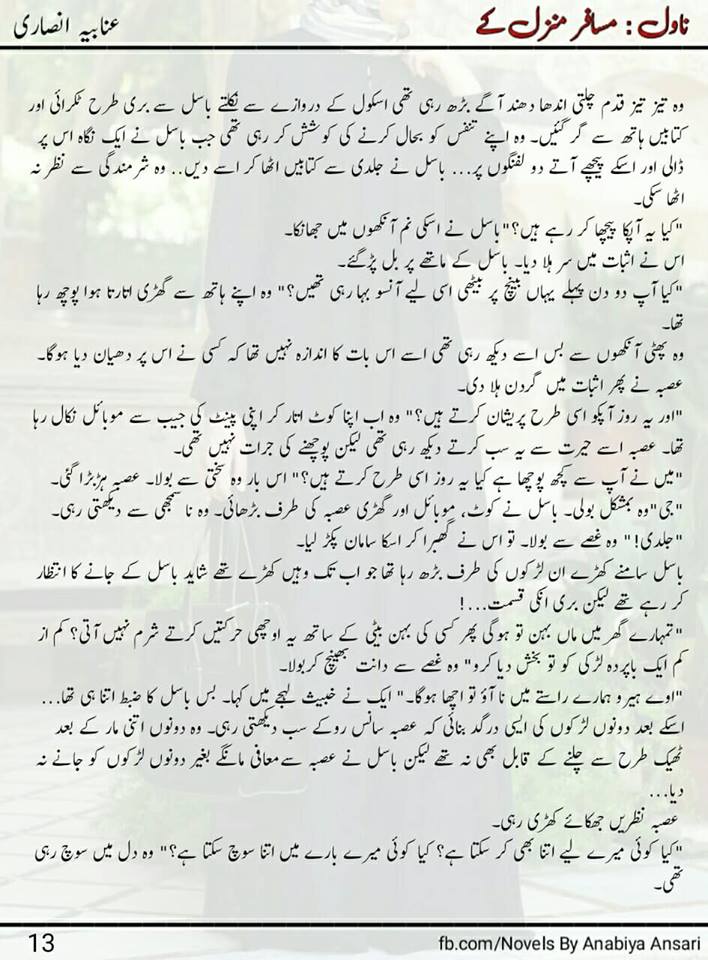 ناول : مسافر منزل کے
عنابیہ انصاری
وہ تیز تیز قدم چلتی اندھا دھند آگے بڑھ رہی تھی اسکول کے دروازے سے نکلتے باسل سے بری طرح ٹکرائی اور
کتابیں ہاتھ سے گر گئیں۔ وہ اپنے تنفس کو بحال کرنے کی کوشش کر رہی تھی جب باسل نے ایک نگاہ اس پر
ڈالی اور اسکے پیچھے آتے دو لفنگوں پر... باسل نے جلدی سے کتابیں اٹھا کر اسے دیں.. وہ شرمندگی سے نظر نہ
اٹھا سکی۔
"کیا یہ آپکا پیچھا کر رہے ہیں؟" باسل نے اسکی نم آنکھوں میں جھانکا۔
اس نے اثبات میں سر ہلا دیا۔ باسل کے ماتھے پر بل پڑ گئے۔
"کیا آپ دو دن پہلے یہاں بینچ پر بیٹھی اسی لیے آنسو بہا رہی تھیں؟" وہ اپنے ہاتھ سے گھڑی اتارتا ہوا پوچھ رہا
تھا۔
وہ پھٹی آنکھوں سے بس اسے دیکھ رہی تھی اسے اس بات کا اندازہ نہیں تھا کہ کسی نے اس پر دھیان دیا ہوگا۔
عصبہ نے پھر اثبات میں گردن ہلا دی۔
"اور یہ روز آپکو اسی طرح پریشان کرتے ہیں؟" وہ اب اپنا کوٹ اتار کر اپنی پینٹ کی جیب سے موبائل نکال رہا
تھا۔ عصبہ اسے حیرت سے یہ سب کرتے دیکھ رہی تھی لیکن پوچھنے کی جرات نہیں تھی۔
"میں نے آپ سے کچھ پوچھا ہے کیا یہ روز اسی طرح کرتے ہیں؟" اس بار وہ سختی سے بولا۔ عصبہ ہڑبڑا گئی۔
"جی" وہ بمشکل بولی۔ باسل نے کوٹ، موبائل اور گھڑی عصبہ کی طرف بڑھائی۔ وہ نا سمجھی سے دیکھتی رہی۔
"جلدی!" وہ غصے سے بولا۔ تو اس نے گھبرا کر اسکا سامان پکڑ لیا۔
باسل سامنے کھڑے ان لڑکوں کی طرف بڑھ رہا تھا جو اب تک وہیں کھڑے تھے شاید باسل کے جانے کا انتظار
کر رہے تھے لیکن بری انکی قسمت...!
"تمہارے گھر میں ماں بہن تو ہوگی پھر کسی کی بہن بیٹی کے ساتھ یہ اوچھی حرکتیں کرتے شرم نہیں آتی؟ کم از
کم ایک باپردہ لڑکی کو تو بخش دیا کرو" وہ غصے سے دانت بھینچ کر بولا۔
"اوے ہیرو ہمارے راستے میں نا آؤ تو اچھا ہوگا۔" ایک نے خبیث لہجے میں کہا۔ بس باسل کا ضبط اتنا ہی تھا...
اسکے بعد دونوں لڑکوں کی ایسی درگد بنائی کہ عصبہ سانس روکے سب دیکھتی رہی۔ وہ دونوں اتنی مار کے بعد
ٹھیک طرح سے چلنے کے قابل بھی نہ تھے لیکن باسل نے عصبہ سے معافی مانگے بغیر دونوں لڑکوں کو جانے نہ
دیا...
عصبہ نظریں جھکائے کھڑی رہی۔
"کیا کوئی میرے لیے اتنا بھی کر سکتا ہے؟ کیا کوئی میرے بارے میں اتنا سوچ سکتا ہے؟" وہ دل میں سوچ رہی
تھی۔
13
fb.com/Novels By Anabiya Ansari